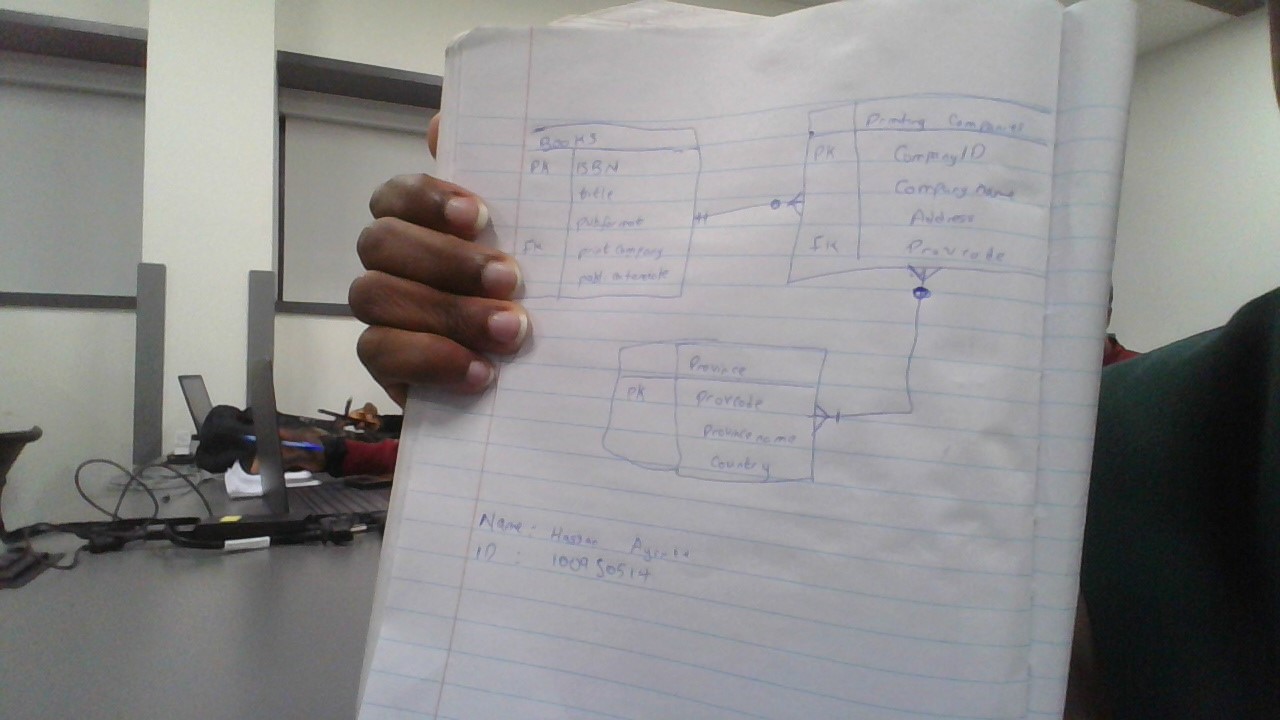 Books
PK ISBN
title
pubformat
FK print company
publ. date
Printing Companies
PK CompanyID
Company name
Address
FK Provcode
Province
PK Provcode
Province name
Country
Name: Hassan
ID : 100950514